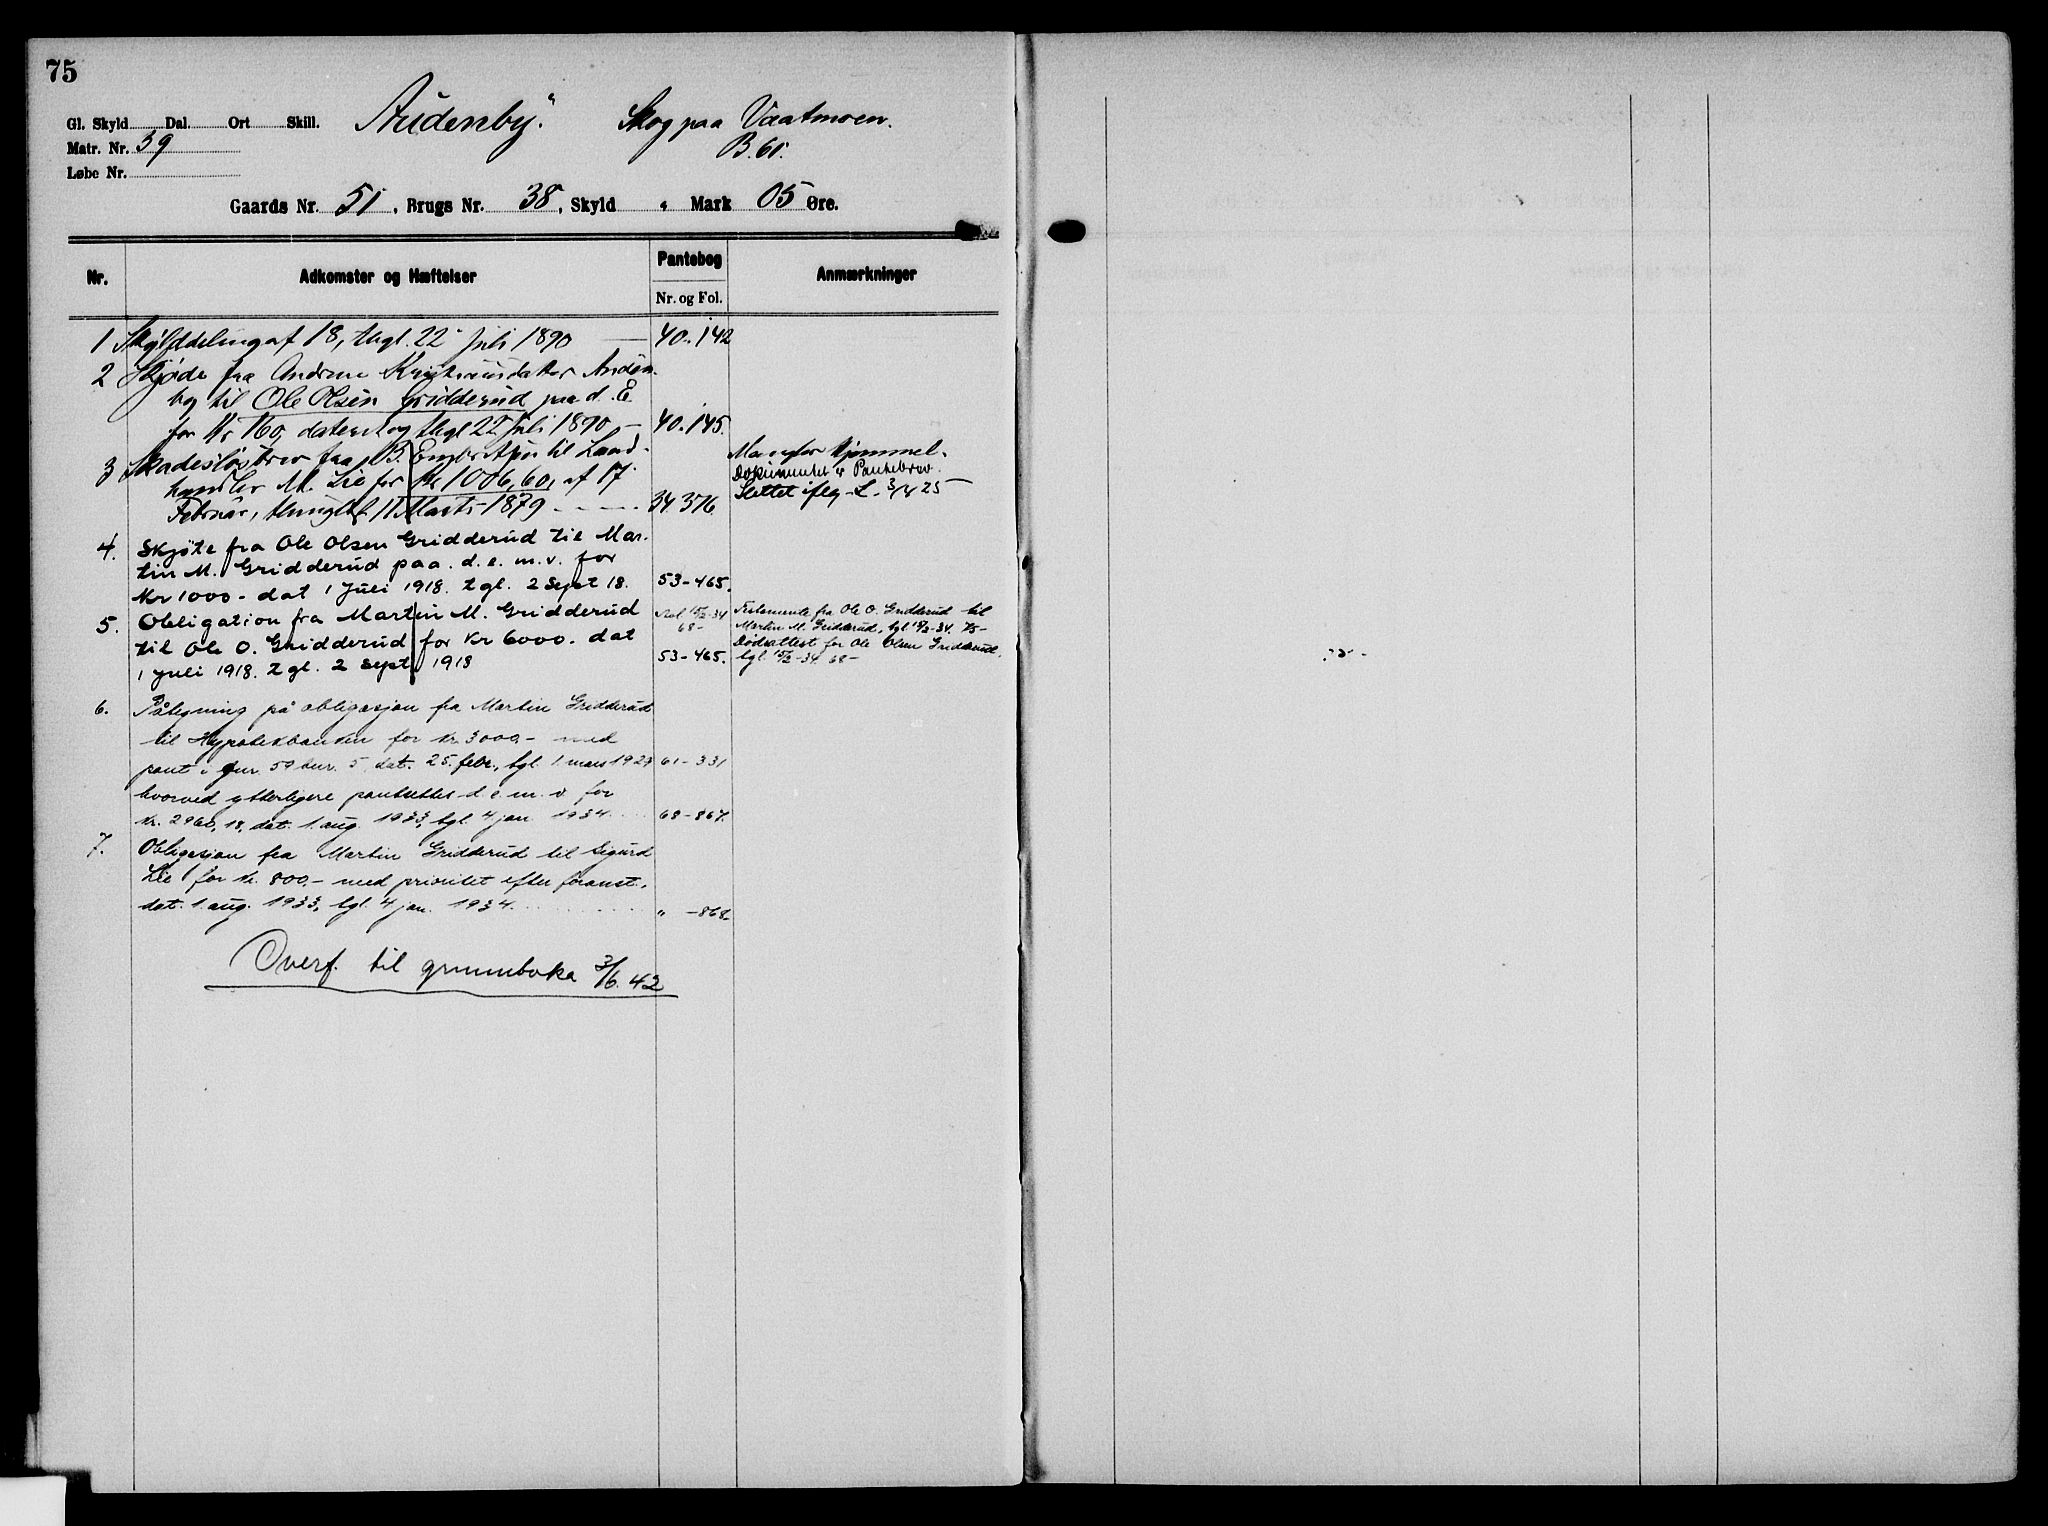 75
Audenby." Skog paa Vaatmoen.
Gl. Skyld Dal. Ort Skill.
Matr. Nr. 39 B. 61.
Løbe Nr.
Gaards Nr. 51, Brugs Nr. 38, Skyld " Mark 05 Øre.
Nr. Adkomster og Hæftelser Pantebog Anmærkninger
Nr. og Fol.
1 Skylddeling af 18, thgl. 22 Juli 1890 — 40. 142
2 Skjøde fra Andrine Auden-
by til Ole Olsen Gridderud paa d. E.
for Kr 160, dateret og thgl 22 Juli 1890 — 40. 145.
3 Skadesløsbrev fra B. til Land- Mangler Hjemmel.
handler M. Lie for Kr 1006,60, af 17 Dokumentet er Pantebrev.
Februar, thinglæst 11 Marts 1879 34. 376. Slettet iflg. L. 3/4 25
4. Skjøte fra Ole Olsen Gridderud til Mar-
tin M. Gridderud paa. d. e. m. v. for
Kr 1000.- dat 1 Juli 1918. tgl. 2 Sept 18. 53-465.
5. Obligation fra Martin M. Gridderud 15/2-34 Testamente fra Ole O. Gridderud til
til Ole O. Gridderud for Kr 6000. dat 68- Martin M. Gridderud, tgl 15/2-34. 75-
1 Juli 1918. tgl. 2 Sept 1918 53-465. Dødsattest for Ole Olsen Gridderud,
tgl. 15/2-34. 68-
6. Påtegning på obligasjon fra Martin Gridderud
til Hypotekbanken for kr. 3000,- med
pant i gnr. 59 bnr. 5, dat. 25. febr., tgl. 1. mars 1927 61-331
hvorved ytterligere pantsettes d. e. m. v. for
kr. 2960,18, dat. 1. aug. 1933, tgl. 4 jan. 1934. 68-867.
7. Obligasjon fra Martin Gridderud til Sigurd
Lie for kr. 800,- med prioritet efter foranst.,
dat. 1. aug. 1933, tgl. 4 jan. 1934. " -868.
Overf. til grunnboka 3/6. 42